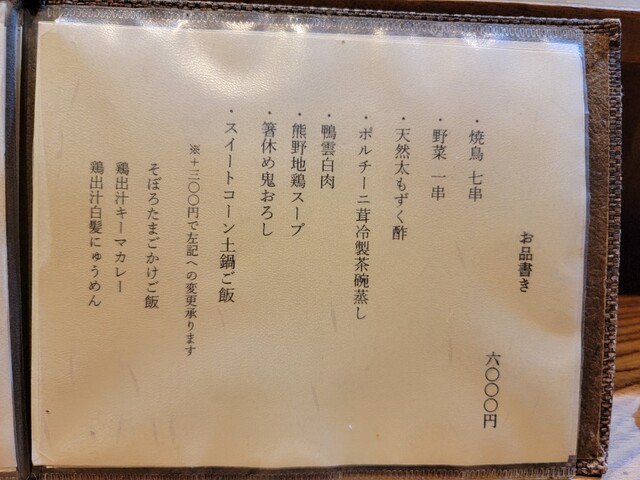 お品書き
六〇〇〇円
・焼鳥 七串
・野菜 一串
・天然太もずく酢
・ポルチーニ茸冷製茶碗蒸し
・鴨雲白肉
・熊野地鶏スープ
・箸休め鬼おろし
・スイートコーン土鍋ご飯
※+三〇〇円で左記への変更承ります
そぼろたまごかけご飯
鶏出汁キーマカレー
鶏出汁白髪にゅうめん